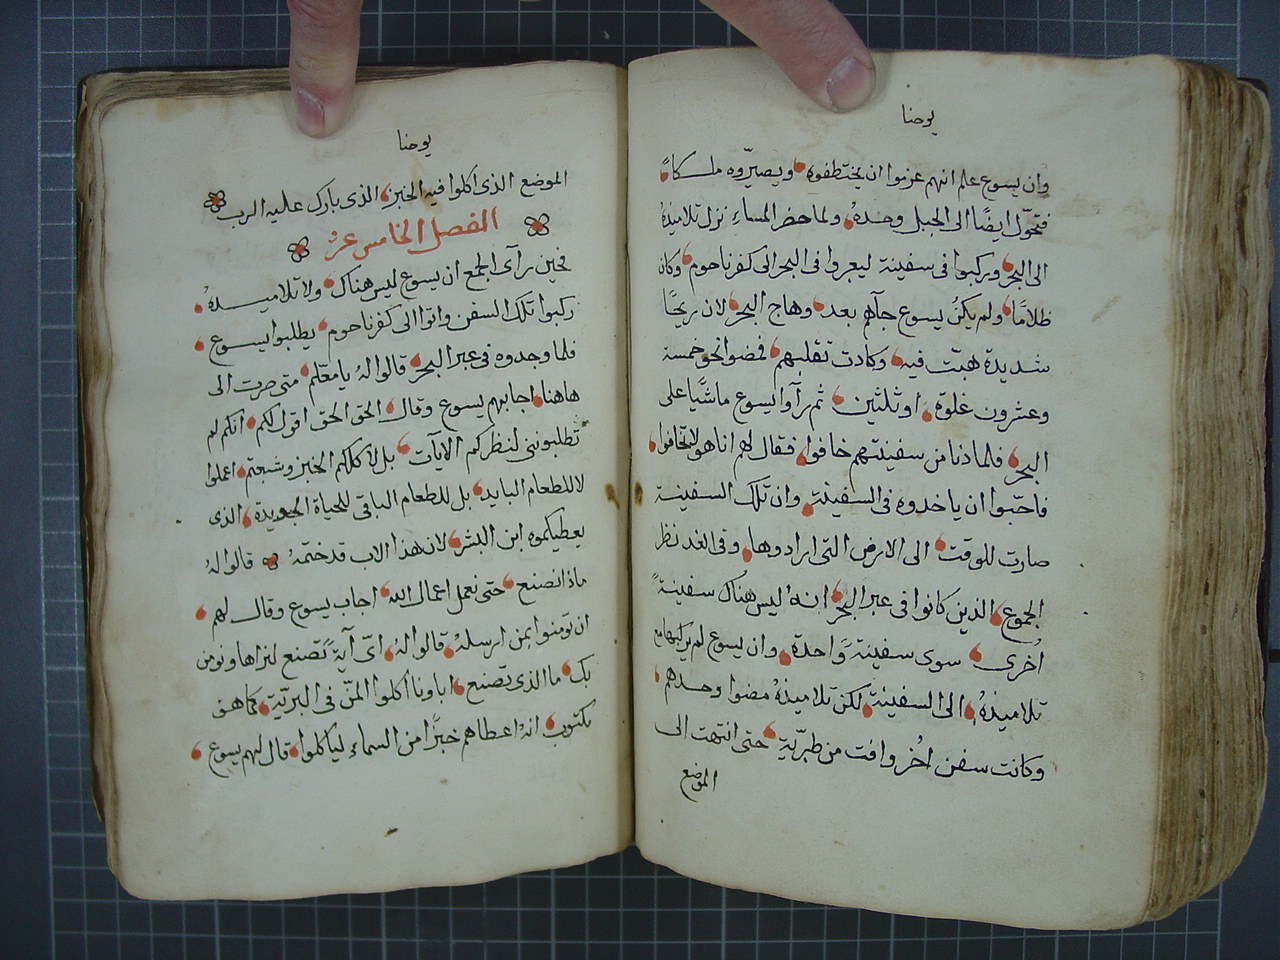 يوحنا
وان يسوع علم انهم عزموا ان يختطفوه ويصيّروه ملكاً
فتحوّل ايضًا الى الجبل وحدهُ ولما حضر المساء نزل تلاميذهُ
الى البحر وركبوا فى سفينة ليعبروا فى البحر الى كفرناحوم وكان
ظلامًا ولم يكنُ يسوع جآهم بعد وهاج البحر لان ريحًا
شديدة هبّت فيه وكادت تقلبهم فمضوا نحو خمسة
وعشرون غلوة او ثلثين ثم رآوا يسوع ماشيًا على
البحر فلما دنا من سفينتهم خافوا فقال لهم انا هو لاتخافوا
فاحبّوا ان ياخدوه فى السفينة وان تلك السفينة
صارت للوقت الى الارض التى ارادوها وفى الغد نظر
الجموع الذين كانوا فى عبر البحر انهُ ليس هناك سفينةً
اخرى سوى سفينةً واحدة وان يسوع لم يركبها مع
تلاميذهُ الى السفينة لكن تلاميذهُ مضوا وحدهم
وكانت سفن اُخُر وافت من طبريّة حتى انتهت الى
الموضع
يوحنا
الموضع الذى اكلوا فيه الخبز الذى بارك عليه الرب
الفصل الخامس عشر
فحين رآى الجمع ان يسوع ليس هناك ولا تلاميذهُ
ركبوا تلك السفن واتوا الى كفرناحوم يطلبوا يسوع
فلما وجدوه فى عبر البحر قالوا لهُ يا معلّم متى صرت الى
هاهنا اجابهم يسوع وقال الحق الحق اقول لكم انكم لم
تطلبوننى لنظركم الايات بل لاكلكم الخبز وشبعتم اعملوا
لا للطعام البايد بل للطعام الباقى للحياة الجديدة الذى
يعطيكموه ابن البشر لان هذا الاب قد ختمهُ قالوا لهُ
ماذا نصنع حتى نعمل اعمال الله اجاب يسوع وقال لهم
ان تومنوا بمن ارسلهُ قالوا لهُ اىّ آيةً تصنع لنراها ونومن
بك ما الذى تصنع اباونا اكلوا المنّ فى البريّة كما هو
مكتوب انهُ اعطاهم خبزًا من السماء لياكلوا قال لهم يسوع